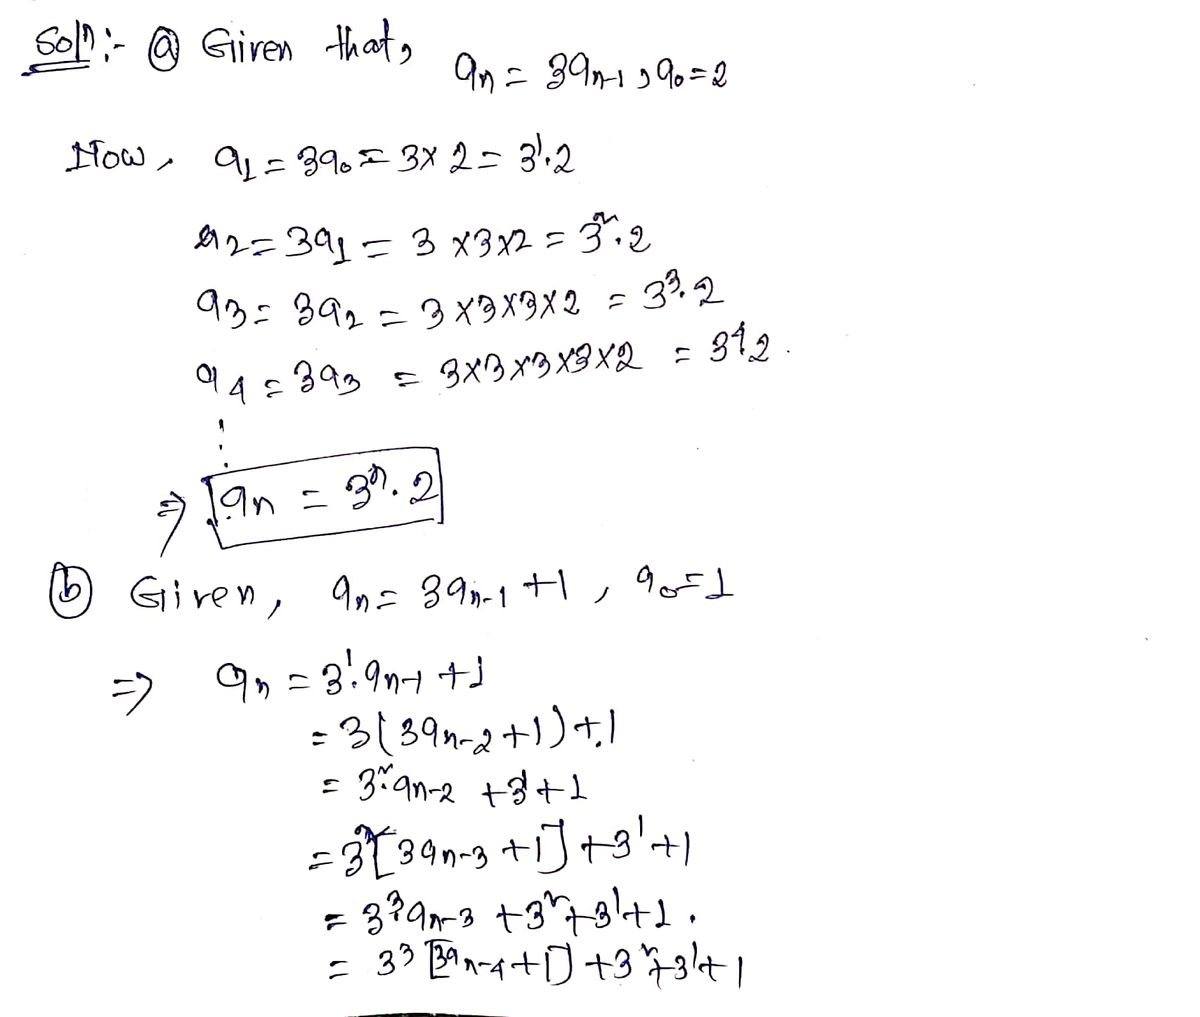 Soln:- ⓐ Given that, aₙ = 3aₙ₋₁, a₀ = 2
Now, a₁ = 3a₀ = 3 × 2 = 3¹·2
a₂ = 3a₁ = 3 × 3 × 2 = 3²·2
a₃ = 3a₂ = 3 × 3 × 3 × 2 = 3³·2
a₄ = 3a₃ = 3 × 3 × 3 × 3 × 2 = 3⁴2.
⋮
⇒ aₙ = 3ⁿ·2
ⓑ Given, aₙ = 3aₙ₋₁ + 1, a₀ = 1
⇒ aₙ = 3¹·aₙ₋₁ + 1
= 3(3aₙ₋₂ + 1) + 1
= 3²·aₙ₋₂ + 3¹ + 1
= 3²[3aₙ₋₃ + 1] + 3¹ + 1
= 3³·aₙ₋₃ + 3² + 3¹ + 1.
= 3³[3aₙ₋₄ + 1] + 3² + 3¹ + 1